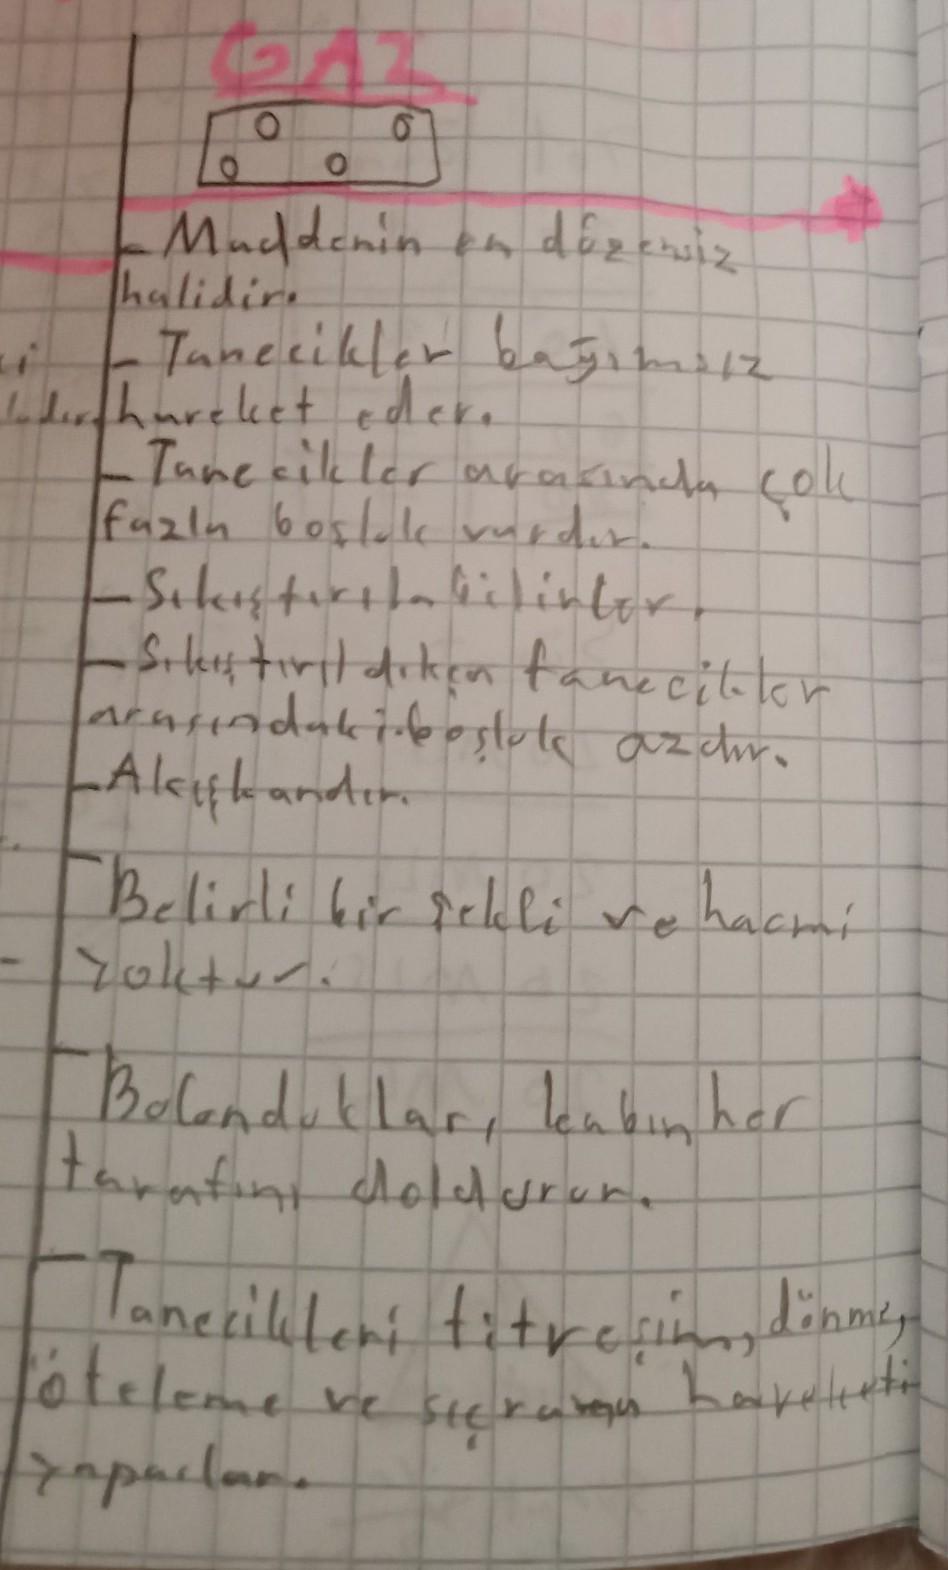 GAZ
- Maddenin en düzensiz
halidir.
- Tanecikler bağımsız
hareket eder.
- Tanecikler arasında çok
fazla boşluk vardır.
- Sıkıştırılabilirler.
- Sıkıştırıldıken tanecikler
arasındaki boşluk azdır.
- Akışkandır.
- Belirli bir şekli ve hacmi
yoktur.
- Bolundukları kabın her
tarafını doldurur.
- Tanecikleri titreşim, dönme,
öteleme ve sıçrama hareketi
yaparlar.